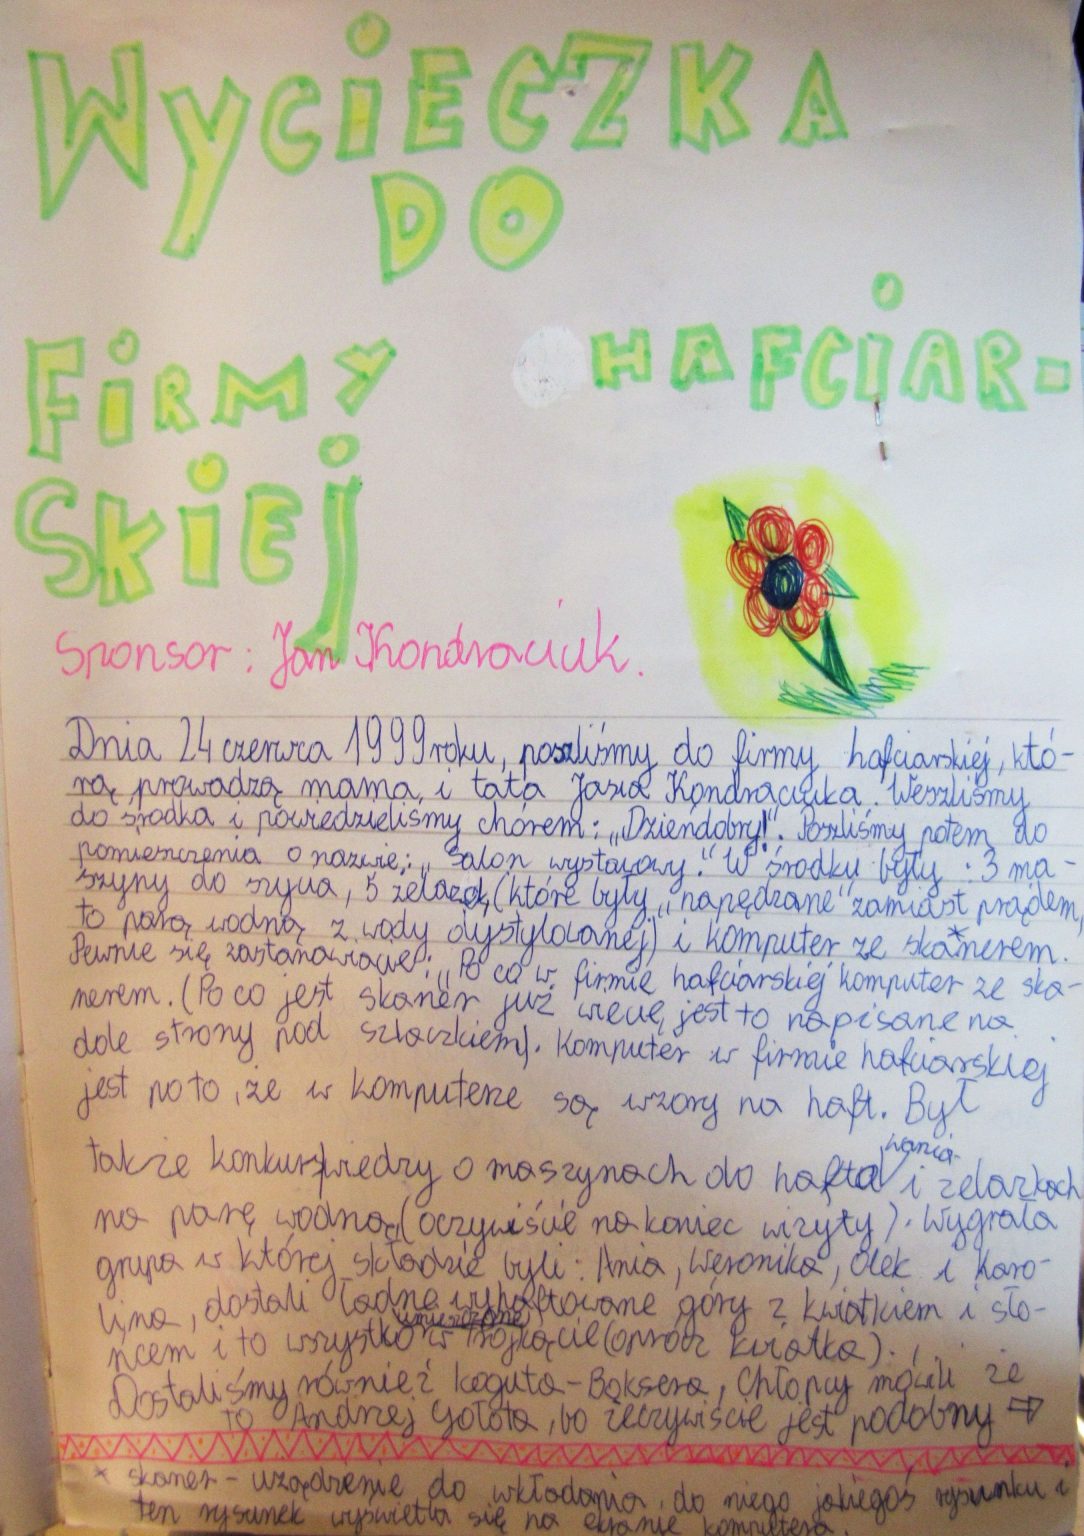 WYCIECZKA
DO
FIRMY HAFCIAR-
SKIEJ
Sponsor: Jan Kondraciuk.
Dnia 24 czerwca 1999 roku, poszliśmy do firmy hafciarskiej, któ-
rą prowadzą mama i tata Jasia Kondraciuka. Weszliśmy
do środka i powiedzieliśmy chórem: „Dzieńdobry!". Poszliśmy potem do
pomieszczenia o nazwie: „Salon wystawowy." W środku były: 3 ma-
szyny do szycia, 5 żelazek, (które były „napędzane" zamiast prądem,
to parą wodną z wody dystylowanej) i komputer ze ska*nerem.
Pewnie się zastanawiacie: „Po co w firmie hafciarskiej komputer ze ska-
nerem. (Po co jest skaner już wiecie, jest to napisane na
dole strony pod szlaczkiem). Komputer w firmie hafciarskiej
jest po to, że w komputerze są wzory na haft. Był
także konkurs wiedzy o maszynach do haftowania i żelazkach
na parę wodną (oczywiście na koniec wizyty). Wygrała
grupa w której składzie byli: Ania, Weronika, Olek i Karo-
lina, dostali ładne wyhaftowane góry z kwiatkiem i sło-
ńcem i to wszystko w trójkącie (oprócz kwiatka).
Dostaliśmy również koguta-Boksera, Chłopcy mówili że
to Andrzej Gołota, bo rzeczywiście jest podobny ⇨
* skaner - urządzenie do wkładania, do niego jakiegoś rysunku i
ten rysunek wyświetla się na ekranie komputera.